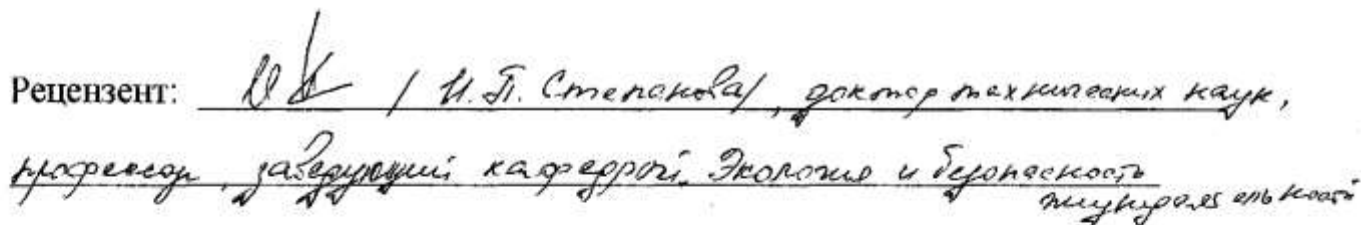 Рецензент: / И.П. Степанова/, доктор технических наук,
профессор, заведующий кафедрой Экология и безопасность
жизнедеятельности